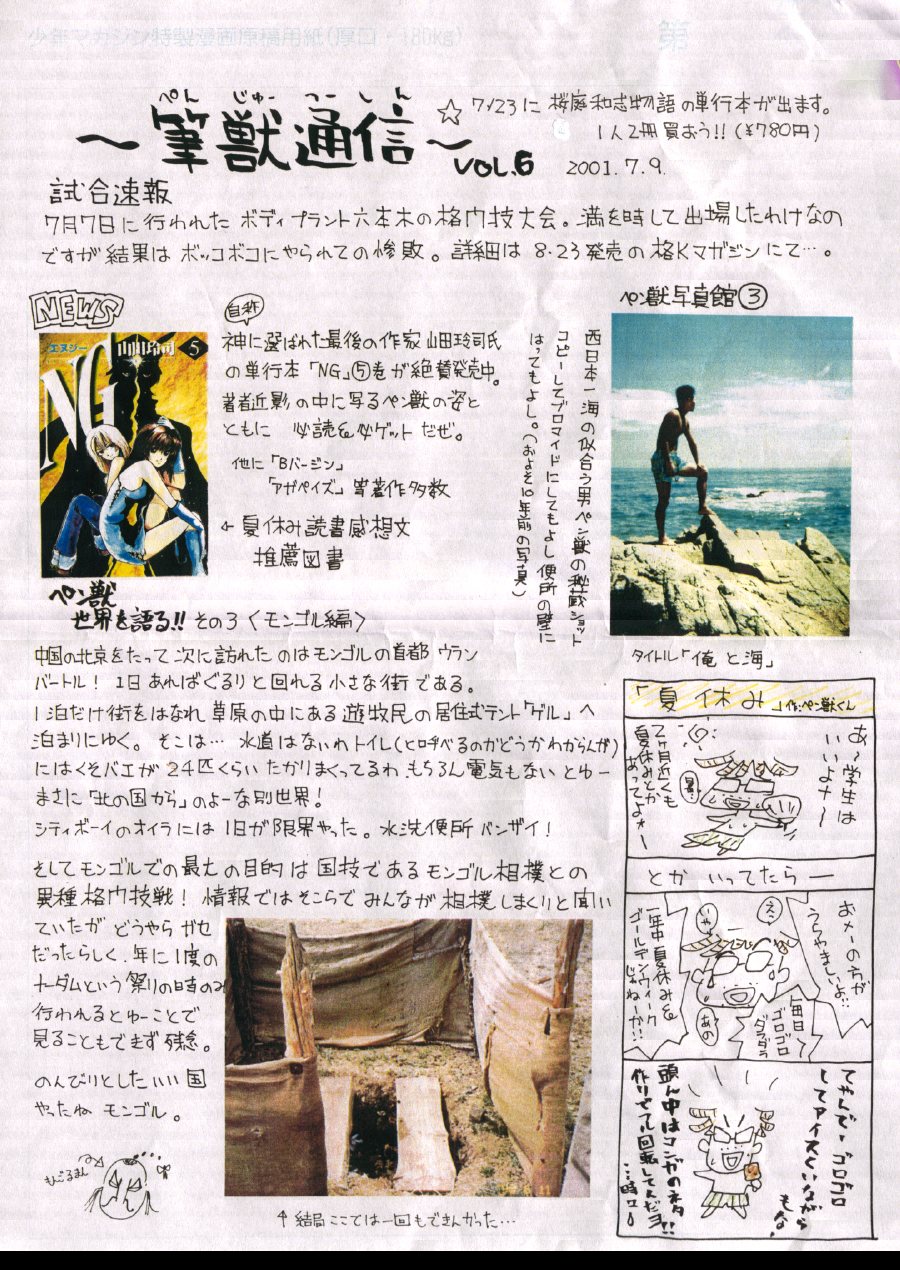 少年マガジン特製漫画原稿用紙(厚口・180kg)
第
ぺん じゅー つー しん
～筆獣通信～
VOL.6
☆ 7/23に 桜庭和志物語の単行本が出ます。
1人2冊買おう!! (¥780円)
2001.7.9.
試合速報
7月7日に行われた ボディプラント六本木の格ウ技大会。満を時して出場したわけなの
ですが結果は ボッコボコにやられての惨敗。詳細は 8・23発売の格Kマガジンにて…。
NEWS
エヌジー
山田玲司
5
NG
自称
神に選ばれた最後の作家 山田玲司氏
の単行本「NG」⑤巻が絶賛発売中。
著者近影の中に写るペン獣の姿と
ともに 必読&必ゲットだぜ。
他に「Bバージン」
「アガペイズ」等著作多数
← 夏休み読書感想文
推薦図書
ペン獣写真館③
西日本一海の似合う男ペン獣の秘蔵ショット
コピーしてブロマイドにしてもよし便所の壁に
はってもよし。(およそ10年前の写真)
タイトル「俺と海」
ペン獣
世界を語る!! その3〈モンゴル編〉
中国の北京をたって次に訪れたのはモンゴルの首都 ウラン
バートル! 1日あればぐるりと回れる小さな街である。
1泊だけ街をはなれ草原の中にある遊牧民の居住式テント「ゲル」へ
泊まりにゆく。そこは… 水道はないわトイレ(と呼べるのかどうかわからんが)
にはくそバエが24匹くらいたかりまくってるわ もちろん電気もないとゆー
まさに「北の国から」のよーな別世界!
シティボーイのオイラには1日が限界やった。水洗便所バンザイ!
そしてモンゴルでの最大の目的は国技であるモンゴル相撲との
異種格ウ技戦! 情報ではそこらでみんなが相撲しまくりと聞い
ていたがどうやらガセ
だったらしく、年に1度の
ナーダムという祭りの時のみ
行われるとゆーことで
見ることもできず残念。
のんびりとしたいい国
やったね モンゴル。
もんごるまん
↑結局ここでは一回もできんかった…
「夏休み」作:ペン獣くん
あ～学生は
いいよナ～
2ヶ月近くも
夏休みとか
あってよォー
暑
とかいってたらー
おメーの方が
うらやましいよ…
えっ
いや
あの
毎日
ゴロゴロ
ダラダラ
一年中夏休み&
ゴールデンウィーク
じゃねーか!!
てやんで、ゴロゴロ
してアイスくいながら
もな
頭ん中はマンガのネタ
作りでフル回転してんだヨ!!